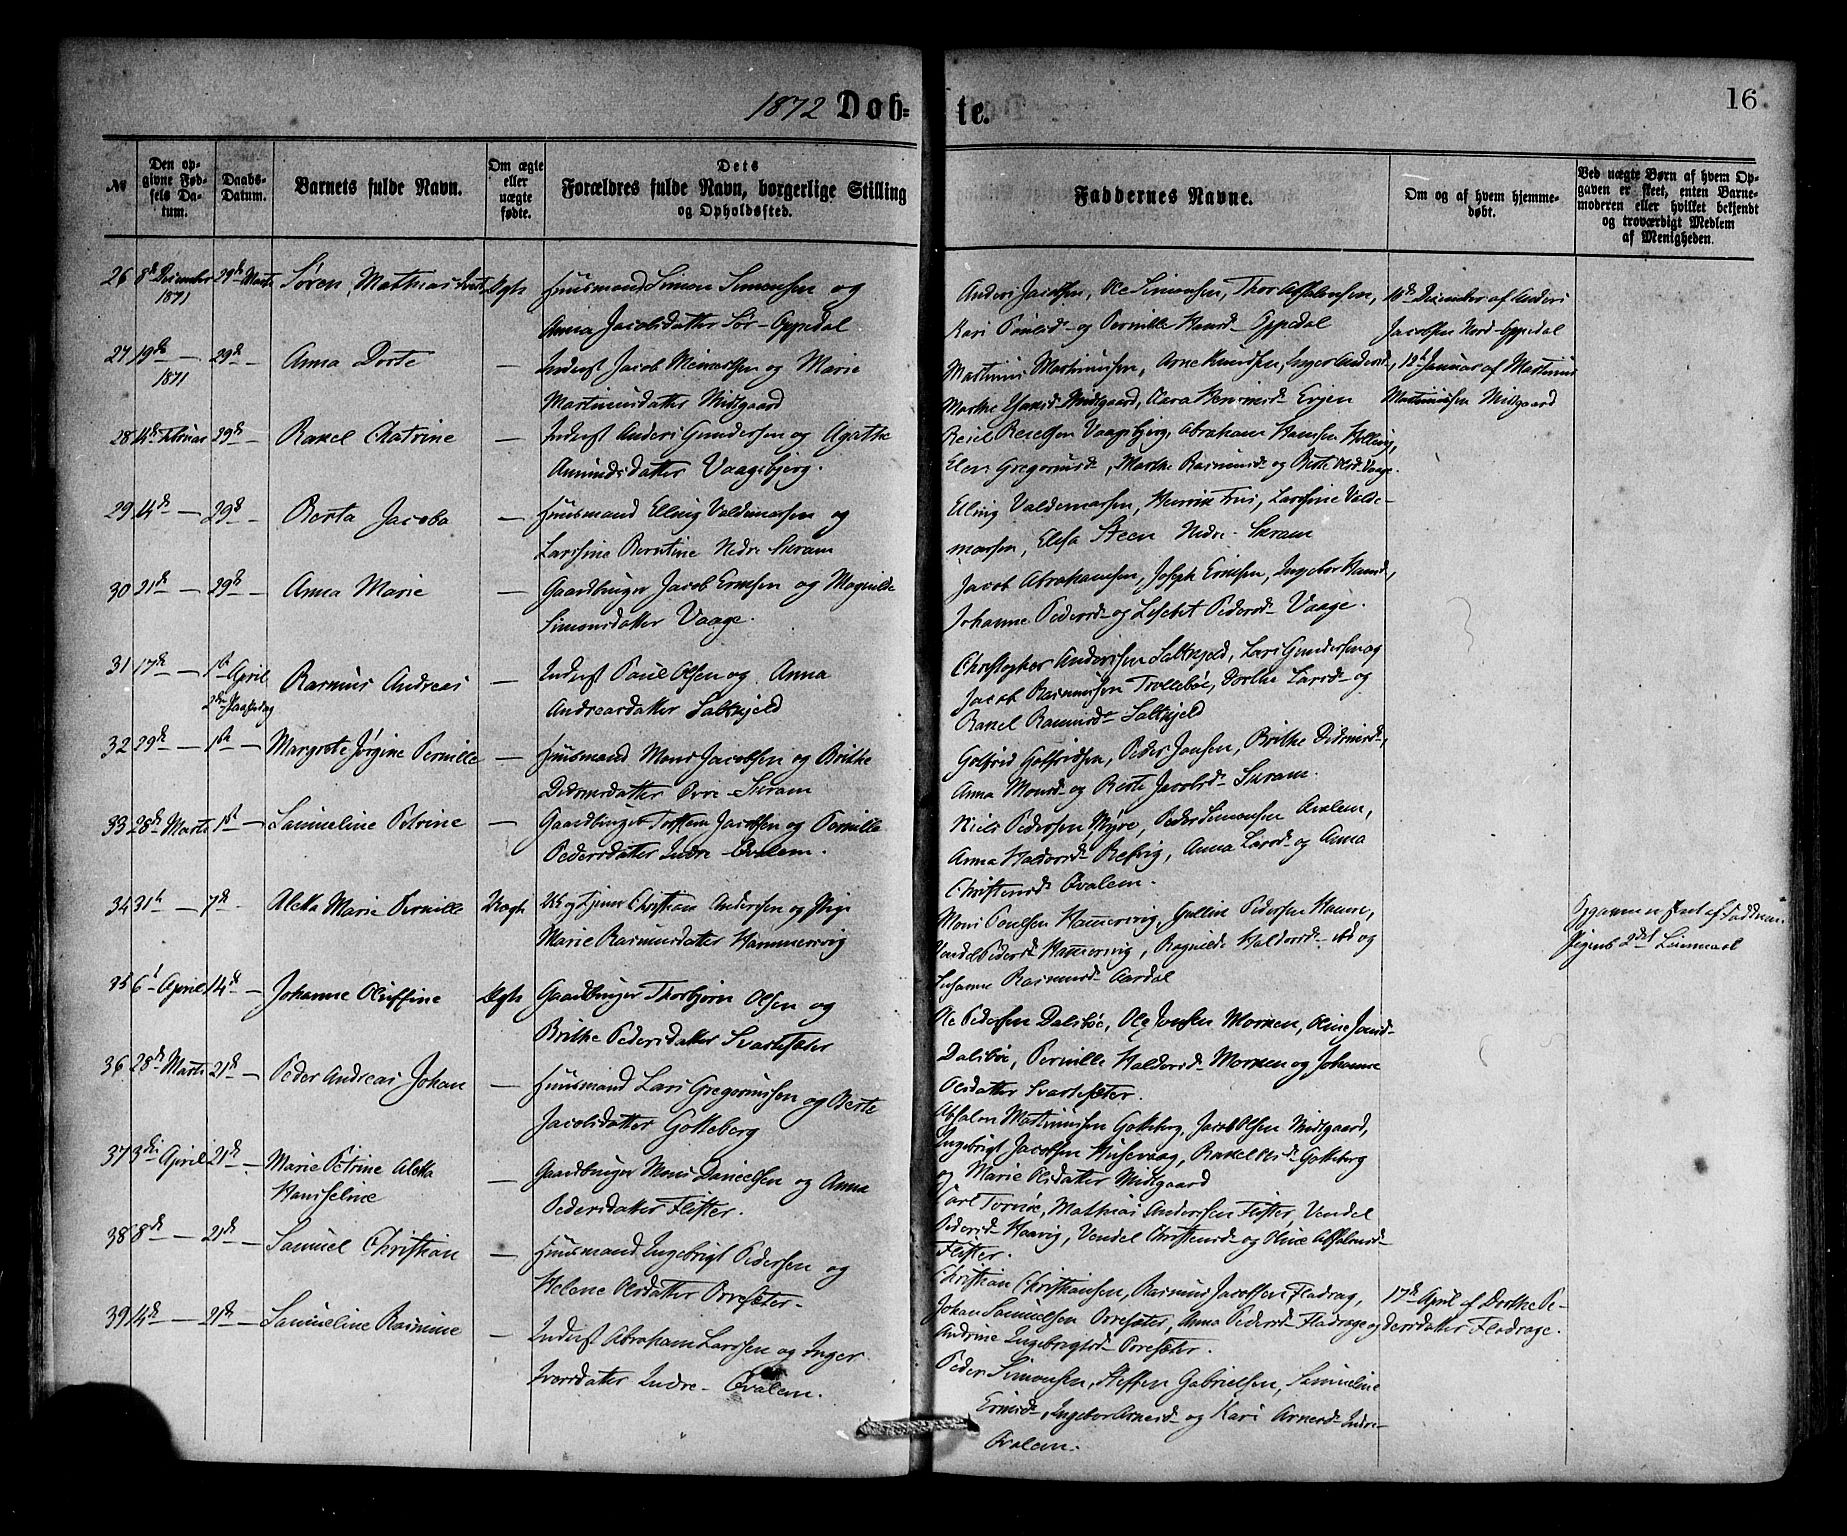 1872 Døb- te. 16
№
Den op-
givne Fød-
sels Da-
tum.
Daabs-
Datum.
Barnets fulde Navn.
Om ægte
eller
uægte
fødte.
Dets
Forældres fulde Navn, borgerlige Stilling
og Opholdssted.
Faddernes Navne.
Om og af hvem hjemme-
døbt.
Ved uægte Børn af hvem Op-
gaven er skeet, enten Barne-
moderen eller hvilket bekjendt
og troværdigt Medlem
af Menigheden.
26 8de December 29de Marts Søren Mathias Ægte Huusmand Simon Simonsen og
1871
Anna Jacobsdatter Sør-Gjødal
Anders Jacobsen, Ole Simonsen, Thor Absalonsen, 10de December af Anders
Kari Poulsd. og Pernille Hansd.
Jacobsen Nord-
27 19de — 29de — Anna Dorte — Inderst Jacob og Marie
1871
Martinusdatter Midtgaard
Martinus Martinussen, Arne Knudsen, Inger Andersd., 12te Januar af Martinus
Marthe Midtgaard, Evjen
Martinussen Midtgaard
28 4de Februar 29de — Rakel Catrine — Inderst Anders Gundersen og Agathe
Amundsdatter Vaagsbjerg.
Resel Reselsen Vaagsbjerg, Abraham Hansen
Elen Gregoriusd., Marthe Rasmusd. og Berte Olsd. Vaage.
29 4de — 29de — Berta Jacoba — Huusmand Elling Valdemarsen og
Larssina Berntine Nedre-Skram
Elling Valdemarsen, Henrik Friis, Larssine Valde-
marsen, Elisa Steen Nedre-Skram
30 21de — 29de — Anna Marie — Gaardbruger Jacob Ernsen og Magnilde
Simonsdatter Vaage.
Jacob Abrahamsen, Joseph Ernsen, Ingebor Hansd.,
Johanne Pedersd. og Lisebet Pedersd. Vaage.
31 17de — 1ste April Rasmus Andreas — Inderst Poul Olsen og Anna
2den Paaskedag
Andreasdatter Saltkjeld
Christopher Andersen Saltkjeld, Lars Gundersen og
Jacob Rasmussen Trollebøe, Dorthe Larsd. og
Rakel Rasmusd. Saltkjeld
32 29de — 1ste — Margrete Jørgine Pernille — Huusmand Mons Jacobsen og Brithe
Didriksdatter Øvre-Skram
Gotfrid Gotfridsen, Peder Jonsen, Brithe Didriksd.,
Anna Monsd. og Berte Jacobsd. Skram.
33 28de Marts 1ste — Samueline Petrine — Gaardbruger Torstein Jacobsen og Pernille
Pedersdatter Indre-Qvalem.
Niels Pedersen Myre, Peder Simonsen Qvalem,
Anna Haldorsd. Refvig, Anna Larsd. og Anna
Christensd. Qvalem.
34 31te — 7de — Aletta Marie Pernille Uægte Christian Andersen og Pige
Marie Rasmusdatter Hammersvig
Mons Poulsen Hammersvig, Gullik Pedersen Hamre,
Vendel Pedersd. Hammersvig, Ragnilde Haldorsd. og
Susanne Rasmusd. Aardal
Opgaven er skeet af
Pigens 2det Leiermaal
35 6te April 14de — Johanne Oluffine Ægte Gaardbruger Thorbjørn Olsen og
Brithe Pedersdatter Svartesæter
Ole Pedersen Dalsbøe, Ole Jensen Morken, Oline Jonsd.
Dalsbøe, Pernille Haldorsd. Morken og Johanne
Olsdatter Svartesæter.
36 28de Marts 21de — Peder Andreas Johan — Huusmand Lars Gregoriussen og Berte
Jacobsdatter Gotteberg
Absalon Martinussen Gotteberg, Jacob Olsen Midtgaard,
Ingebrigt Jacobsen Husevaag, Rakel Olsd. Gotteberg
og Marie Olsdatter Midtgaard
37 3die April 21de — Marie Petrine Aletta — Gaardbruger Mons Danielsen og Anna
Hansseline
Pedersdatter Flister.
Carl Tornøe, Mathias Andersen Flister, Vendel
Pedersd. Haavig, Vendel Christensd. og Oline Absalonsd.
Flister.
38 8de — 21de — Samuel Christian — Huusmand Ingebrigt Pedersen og
Helene Olsdatter Orresæter.
Christian Christiansen, Rasmus Jacobsen Fladrage, 17de April af Dorthe Pe-
Johan Samuelsen Orresæter, Anna Pedersd. Fladrage og dersdatter Fladrage.
Andrine Ingebrigtsd. Orresæter.
39 14de — 21de — Samueline Rasmine — Inderst Abraham Larssen og Inger
Iversdatter Indre-Qvalem.
Peder Simonsen, Steffen Gabrielsen, Samueline
Ernsd., Ingebor Arnesd. og Kari Arnesd. Indre-
Qvalem.